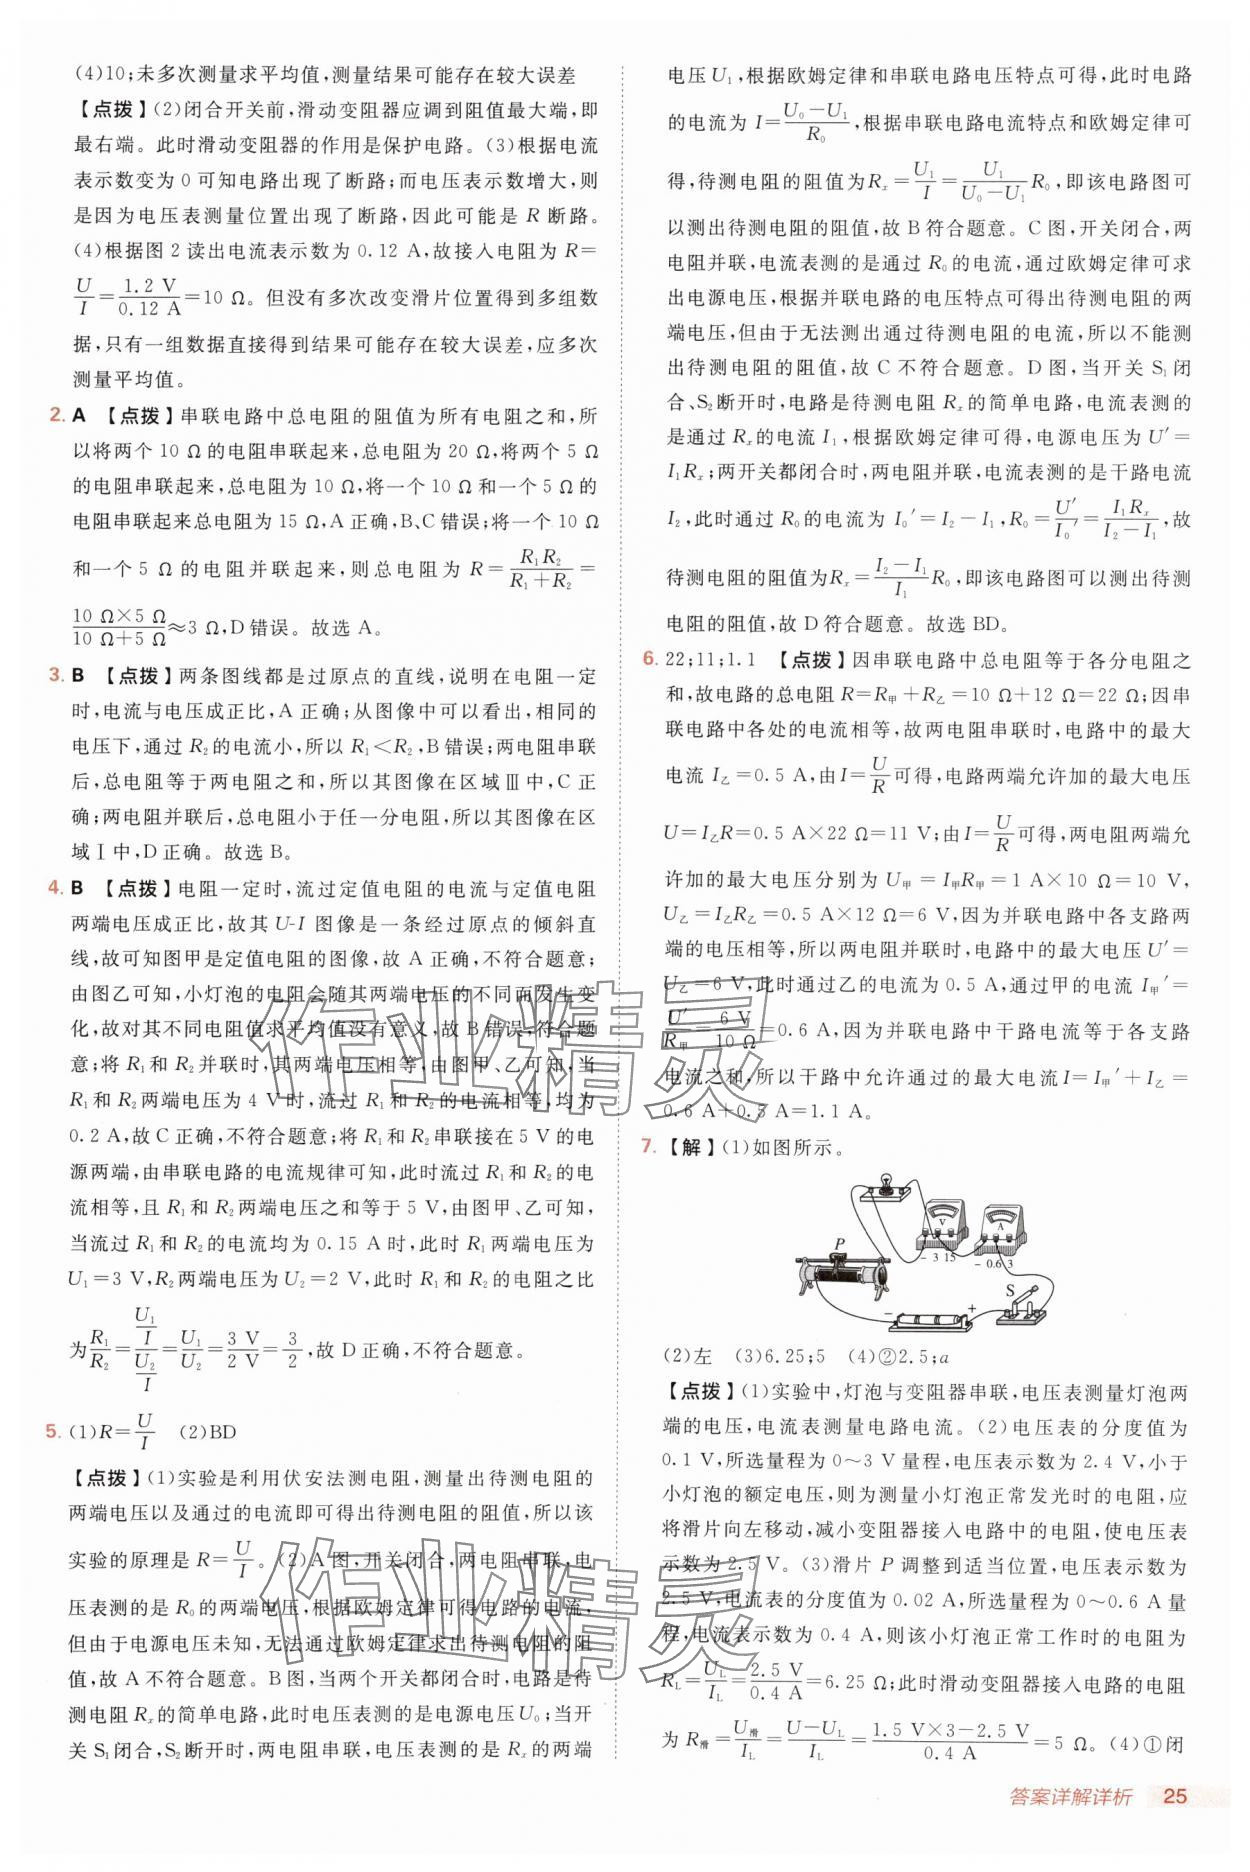 (4)10;未多次测量求平均值,测量结果可能存在较大误差
【点拨】(2)闭合开关前,滑动变阻器应调到阻值最大端,即
最右端。此时滑动变阻器的作用是保护电路。(3)根据电流
表示数变为 0 可知电路出现了断路;而电压表示数增大,则
是因为电压表测量位置出现了断路,因此可能是 R 断路。
(4)根据图 2 读出电流表示数为 0.12 A,故接入电阻为 R=
U/I=1.2 V/0.12 A=10 Ω。但没有多次改变滑片位置得到多组数
据,只有一组数据直接得到结果可能存在较大误差,应多次
测量平均值。
2. A 【点拨】串联电路中总电阻的阻值为所有电阻之和,所
以将两个 10 Ω 的电阻串联起来,总电阻为 20 Ω,将两个 5 Ω
的电阻串联起来,总电阻为 10 Ω,将一个 10 Ω 和一个 5 Ω 的
电阻串联起来总电阻为 15 Ω,A 正确,B、C 错误;将一个 10 Ω
和一个 5 Ω 的电阻并联起来,则总电阻为 R=R₁R₂/(R₁+R₂)=
(10 Ω×5 Ω)/(10 Ω+5 Ω)≈3 Ω,D 错误。故选 A。
3. B 【点拨】两条图线都是过原点的直线,说明在电阻一定
时,电流与电压成正比,A 正确;从图像中可以看出,相同的
电压下,通过 R₂的电流小,所以 R₁<R₂,B 错误;两电阻串联
后,总电阻等于两电阻之和,所以其图像在区域Ⅲ中,C 正
确;两电阻并联后,总电阻小于任一分电阻,所以其图像在区
域Ⅰ中,D 正确。故选 B。
4. B 【点拨】电阻一定时,流过定值电阻的电流与定值电阻
两端电压成正比,故其 U-I 图像是一条经过原点的倾斜直
线,故可知图甲是定值电阻的图像,故 A 正确,不符合题意;
由图乙可知,小灯泡的电阻会随其两端电压的不同而发生变
化,故对其不同电阻值求平均值没有意义,故 B 错误,符合题
意;将 R₁和 R₂并联时,其两端电压相等,由图甲、乙可知,当
R₁和 R₂两端电压为 4 V 时,流过 R₁和 R₂的电流相等,均为
0.2 A,故 C 正确,不符合题意;将 R₁和 R₂串联接在 5 V 的电
源两端,由串联电路的电流规律可知,此时流过 R₁和 R₂的电
流相等,且 R₁和 R₂两端电压之和等于 5 V,由图甲、乙可知,
当流过 R₁和 R₂的电流均为 0.15 A 时,此时 R₁两端电压为
U₁=3 V,R₂两端电压为 U₂=2 V,此时 R₁和 R₂的电阻之比
为R₁/R₂=(U₁/I)/(U₂/I)=U₁/U₂=3 V/2 V=3/2,故 D 正确,不符合题意。
5. (1)R=U/I (2)BD
【点拨】(1)实验是利用伏安法测电阻,测量出待测电阻的
两端电压以及通过的电流即可得出待测电阻的阻值,所以该
实验的原理是 R=U/I。(2)A 图,开关闭合,两电阻串联,电
压表测的是 R₀的两端电压,根据欧姆定律可得电路的电流,
但由于电源电压未知,无法通过欧姆定律求出待测电阻的阻
值,故 A 不符合题意。B 图,当两个开关都闭合时,电路是待
测电阻 Rₓ的简单电路,此时电压表测的是电源电压 U₀;当开
关 S₁闭合,S₂断开时,两电阻串联,电压表测的是 Rₓ的两端
电压 U₁,根据欧姆定律和串联电路电压特点可得,此时电路
的电流为 I=(U₀−U₁)/R₀,根据串联电路电流特点和欧姆定律可
得,待测电阻的阻值为Rₓ=U₁/I=U₁/(U₀−U₁)R₀,即该电路图可
以测出待测电阻的阻值,故 B 符合题意。C 图,开关闭合,两
电阻并联,电流表测的是通过 R₀的电流,通过欧姆定律可求
出电源电压,根据并联电路的电压特点可得出待测电阻的两
端电压,但由于无法测出通过待测电阻的电流,所以不能测
出待测电阻的阻值,故 C 不符合题意。D 图,当开关 S₁闭
合、S₂断开时,电路是待测电阻 Rₓ的简单电路,电流表测的
是通过 Rₓ的电流 I₁,根据欧姆定律可得,电源电压为 U′=
I₁Rₓ;两开关都闭合时,两电阻并联,电流表测的是干路电流
I₂,此时通过 R₀的电流为 I₀′=I₂−I₁,R₀=U′/I₀′=I₁Rₓ/(I₂−I₁),故
待测电阻的阻值为Rₓ=(I₂−I₁)/I₁R₀,即该电路图可以测出待测
电阻的阻值,故 D 符合题意。故选 BD。
6. 22;11;1.1 【点拨】因串联电路中总电阻等于各分电阻之
和,故电路的总电阻 R=R甲+R乙=10 Ω+12 Ω=22 Ω;因串
联电路中各处的电流相等,故两电阻串联时,电路中的最大
电流 I乙=0.5 A,由I=U/R可得,电路两端允许加的最大电压
U=I乙R=0.5 A×22 Ω=11 V;由I=U/R可得,两电阻两端允
许加的最大电压分别为 U甲=I甲R甲=1 A×10 Ω=10 V,
U乙=I乙R乙=0.5 A×12 Ω=6 V,因为并联电路中各支路两
端的电压相等,所以两电阻并联时,电路中的最大电压 U′=
U乙=6 V,此时通过乙的电流为 0.5 A,通过甲的电流 I甲′=
U′/R甲=6 V/10 Ω=0.6 A,因为并联电路中干路电流等于各支路
电流之和,所以干路中允许通过的最大电流I=I甲′+I乙=
0.6 A+0.5 A=1.1 A。
7. 【解】(1)如图所示。
V
A
P
- 3 15
- 0.6 3
S
- +
(2)左 (3)6.25;5 (4)②2.5;a
【点拨】(1)实验中,灯泡与变阻器串联,电压表测量灯泡两
端的电压,电流表测量电路电流。(2)电压表的分度值为
0.1 V,所选量程为 0～3 V量程,电压表示数为 2.4 V,小于
小灯泡的额定电压,则为测量小灯泡正常发光时的电阻,应
将滑片向左移动,减小变阻器接入电路中的电阻,使电压表
示数为 2.5 V。(3)滑片 P 调整到适当位置,电压表示数为
2.5 V,电流表的分度值为 0.02 A,所选量程为 0～0.6 A 量
程,电流表示数为 0.4 A,则该小灯泡正常工作时的电阻为
R_L=U_L/I_L=2.5 V/0.4 A=6.25 Ω;此时滑动变阻器接入电路的电阻
为 R滑=U滑/I_L=(U−U_L)/I_L=(1.5 V×3−2.5 V)/0.4 A=5 Ω。(4)①闭
作业精灵
作业精灵
答案详解详析 25